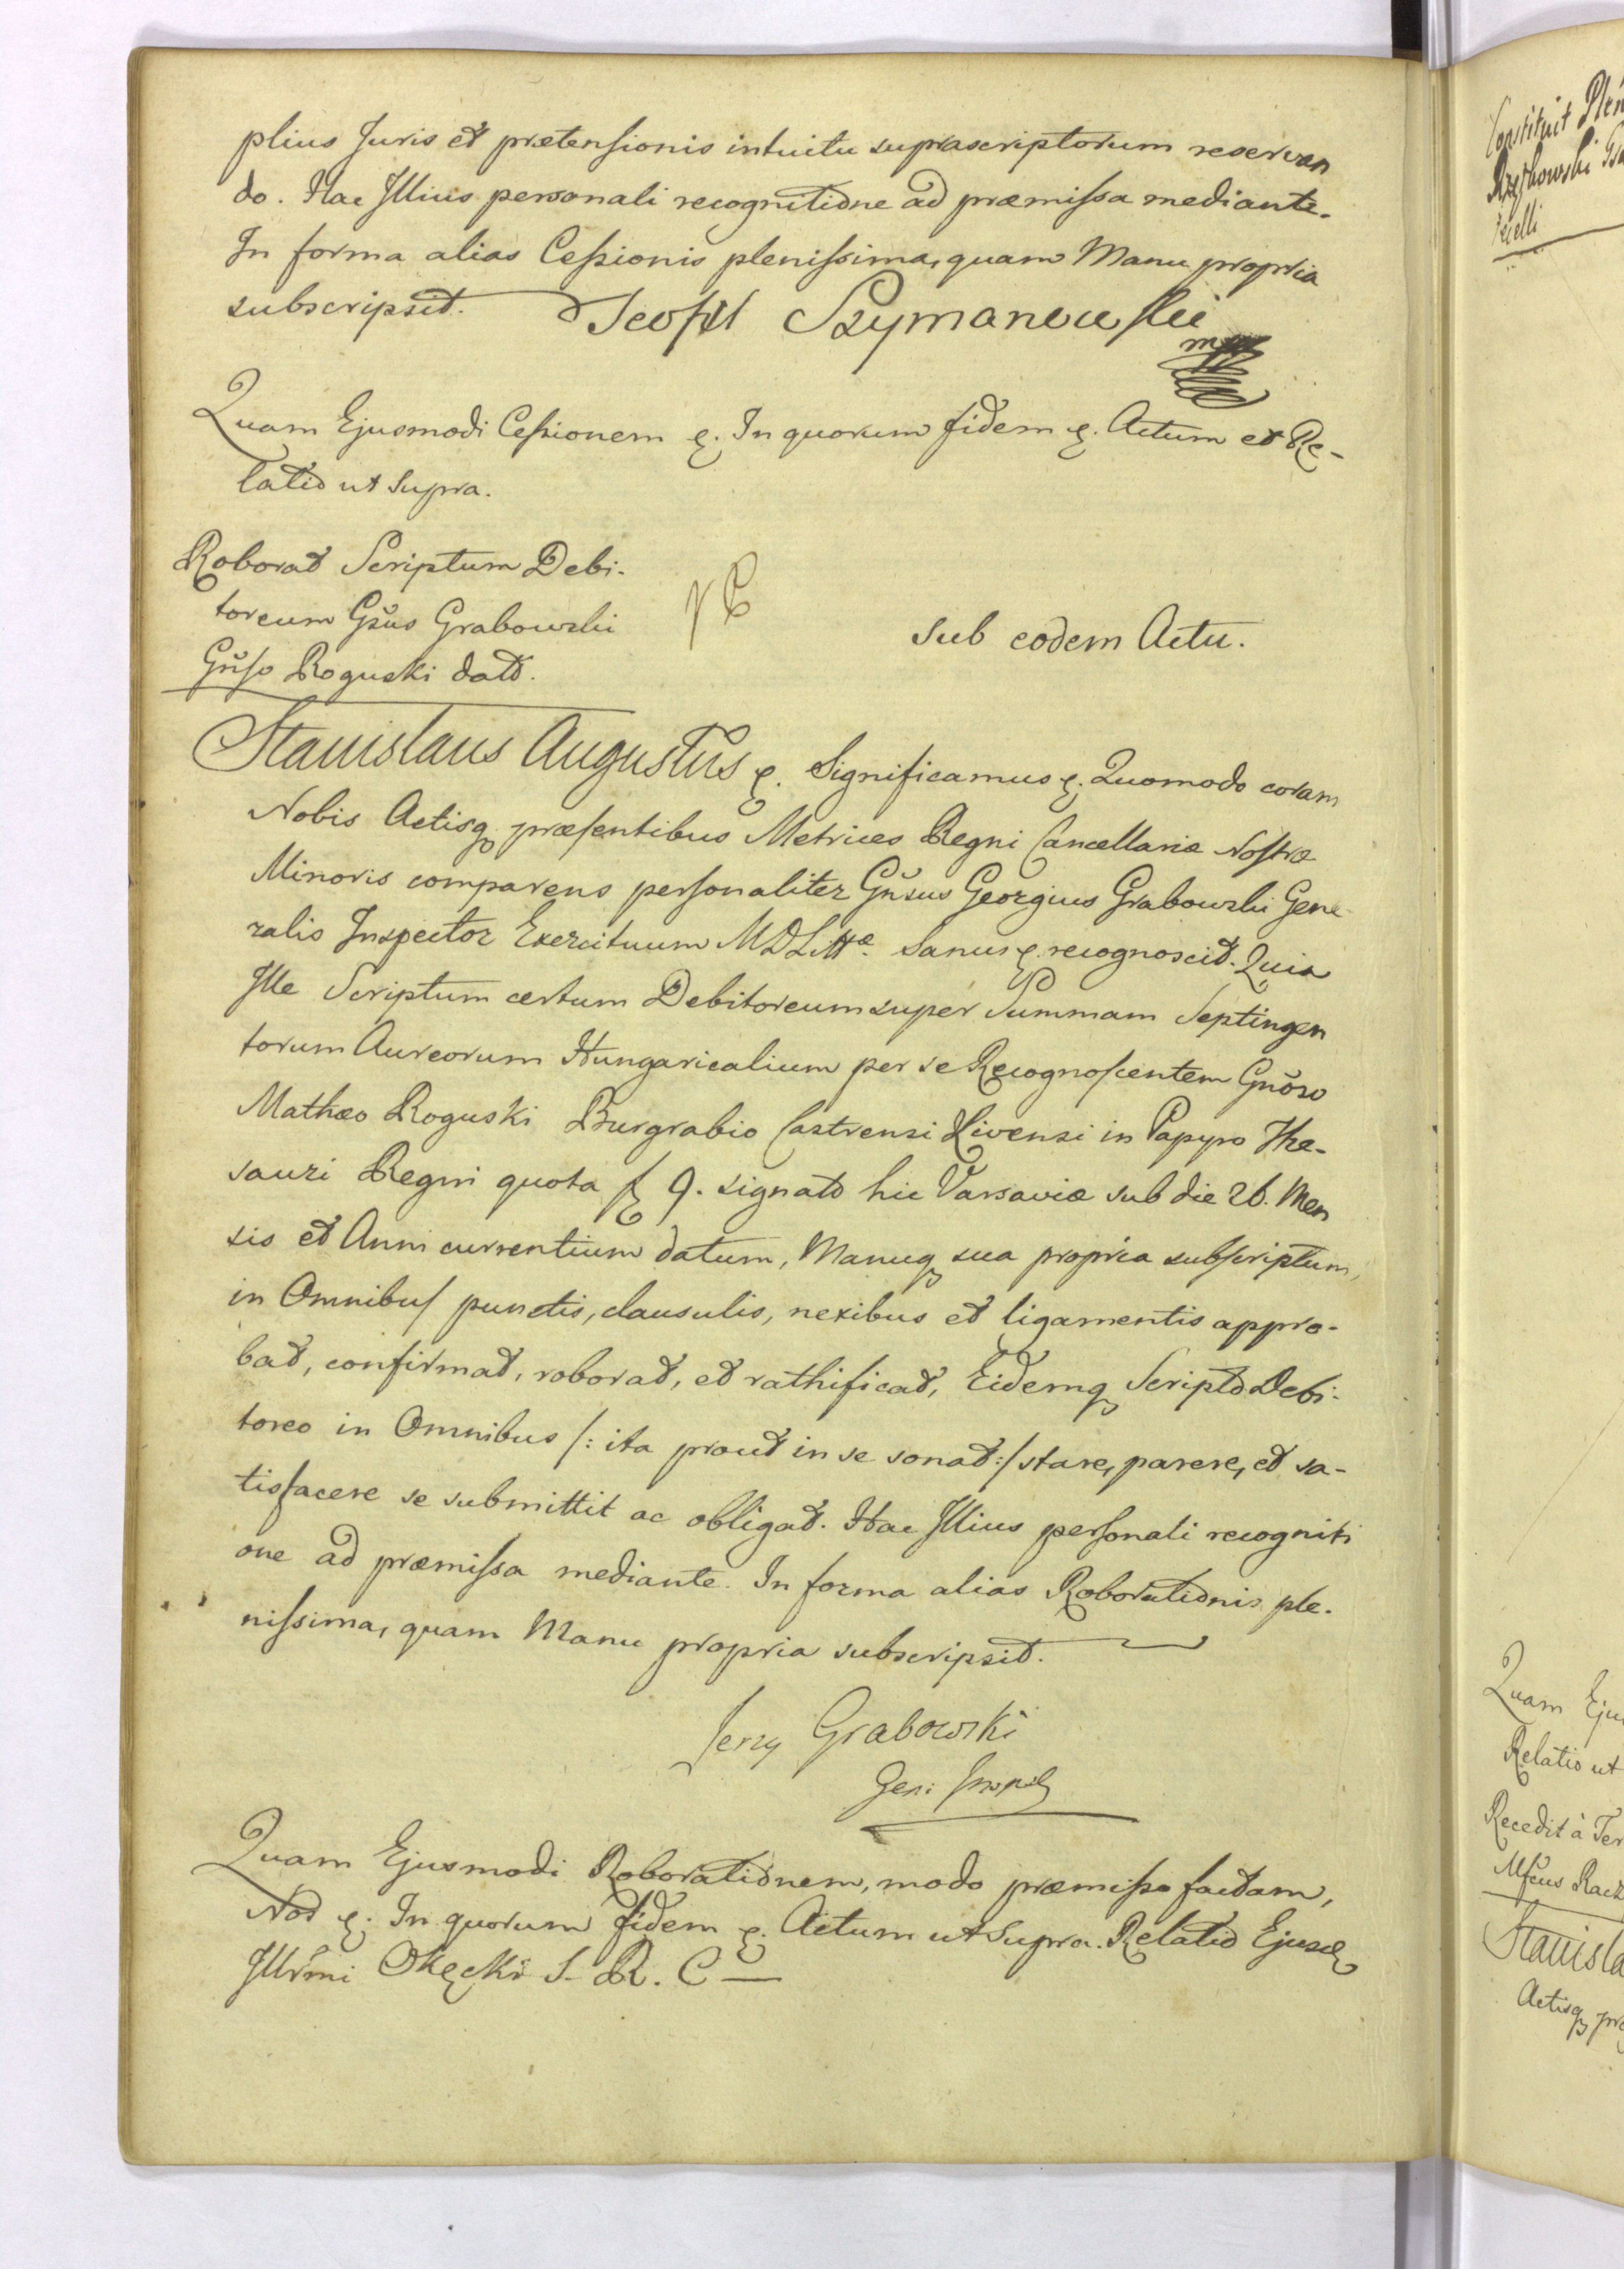 plius Juris et prætensionis intuitu suprascriptorum reservan
do. Hac Illius personali recognitione ad præmissa mediante.
In forma alias Cessionis plenissima, quam Manu propria
subscripsit. Teofil Szymanowski
mp
Quam Ejusmodi Cessionem &. In quorum fidem &. Actum et Re-
latio ut supra.
Roborat Scriptum Debi-
toreum Gsus Grabowski
Gnso Roguski dato.
Sub eodem Actu.
Stanislaus Augustus &. Significamus &. Quomodo coram
Nobis Actisq præsentibus Metrices Regni Cancellariæ Nostræ
Minoris comparens personaliter Gnsus Georgius Grabowski Gene
ralis Inspector Exercituum MDLittæ. Sanus &. recognoscit. Quia
Ille Scriptum certum Debitoreum super Summam Septingen
torum Aureorum Hungaricalium per se Recognoscentem Gnoso
Mathæo Roguski Burgrabio Castrensi Livensi in Papyro The-
sauri Regni quota f 9. signato hic Varsaviæ sub die 26. Men
sis et Anni currentium datum, Manuq sua propria subscriptum,
in Omnibus punctis, clausulis, nexibus et ligamentis appro-
bat, confirmat, roborat, et rathificat, Eidemq Scripto Debi-
toreo in Omnibus /: ita prout in se sonat :/ stare, parere, et sa-
tisfacere se submittit ac obligat. Hac Illius personali recogniti
one ad præmissa mediante. In forma alias Roborationis ple-
nissima, quam Manu propria subscripsit.
Jerzy Grabowski
Gen:
Quam Ejusmodi Roborationem, modo præmisso factam,
Nos &. In quorum fidem &. Actum ut supra. Relatio Ejusd
Illrmi Okęcki S. R. C
Constituit Plen
Rzęszkowski
Quam Ejus
Relatio ut
Recedit à Ter
Mfcus Racz
Stanisla
Actisq præ